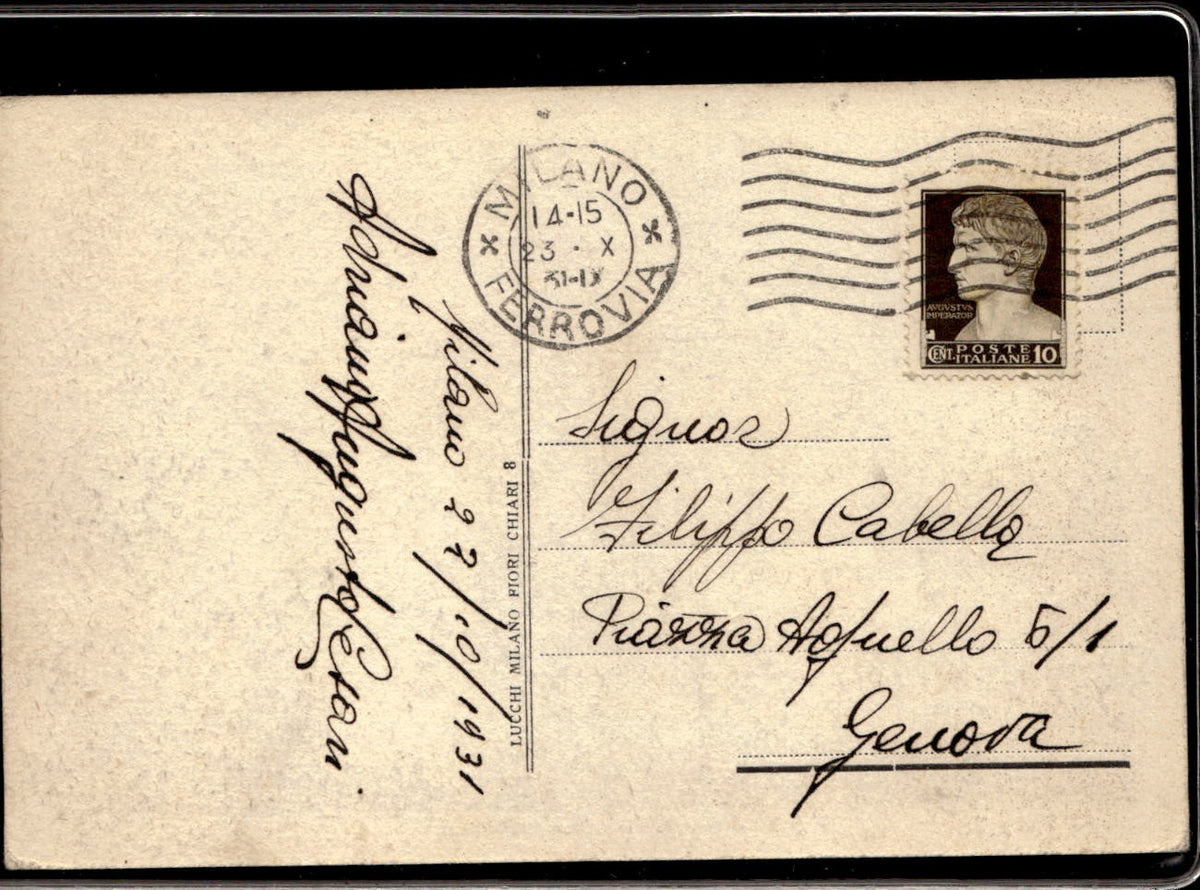 MILANO
14-15
23 · X
31-IX
FERROVIA
AVGVSTVS
IMPERATOR
CENT. POSTE
ITALIANE 10
Signor
Filippo Cabella
Piazza Agnello 5/1
Genova
LUCCHI MILANO FIORI CHIARI 8
Milano 23/10/1931
Augusto Cesari